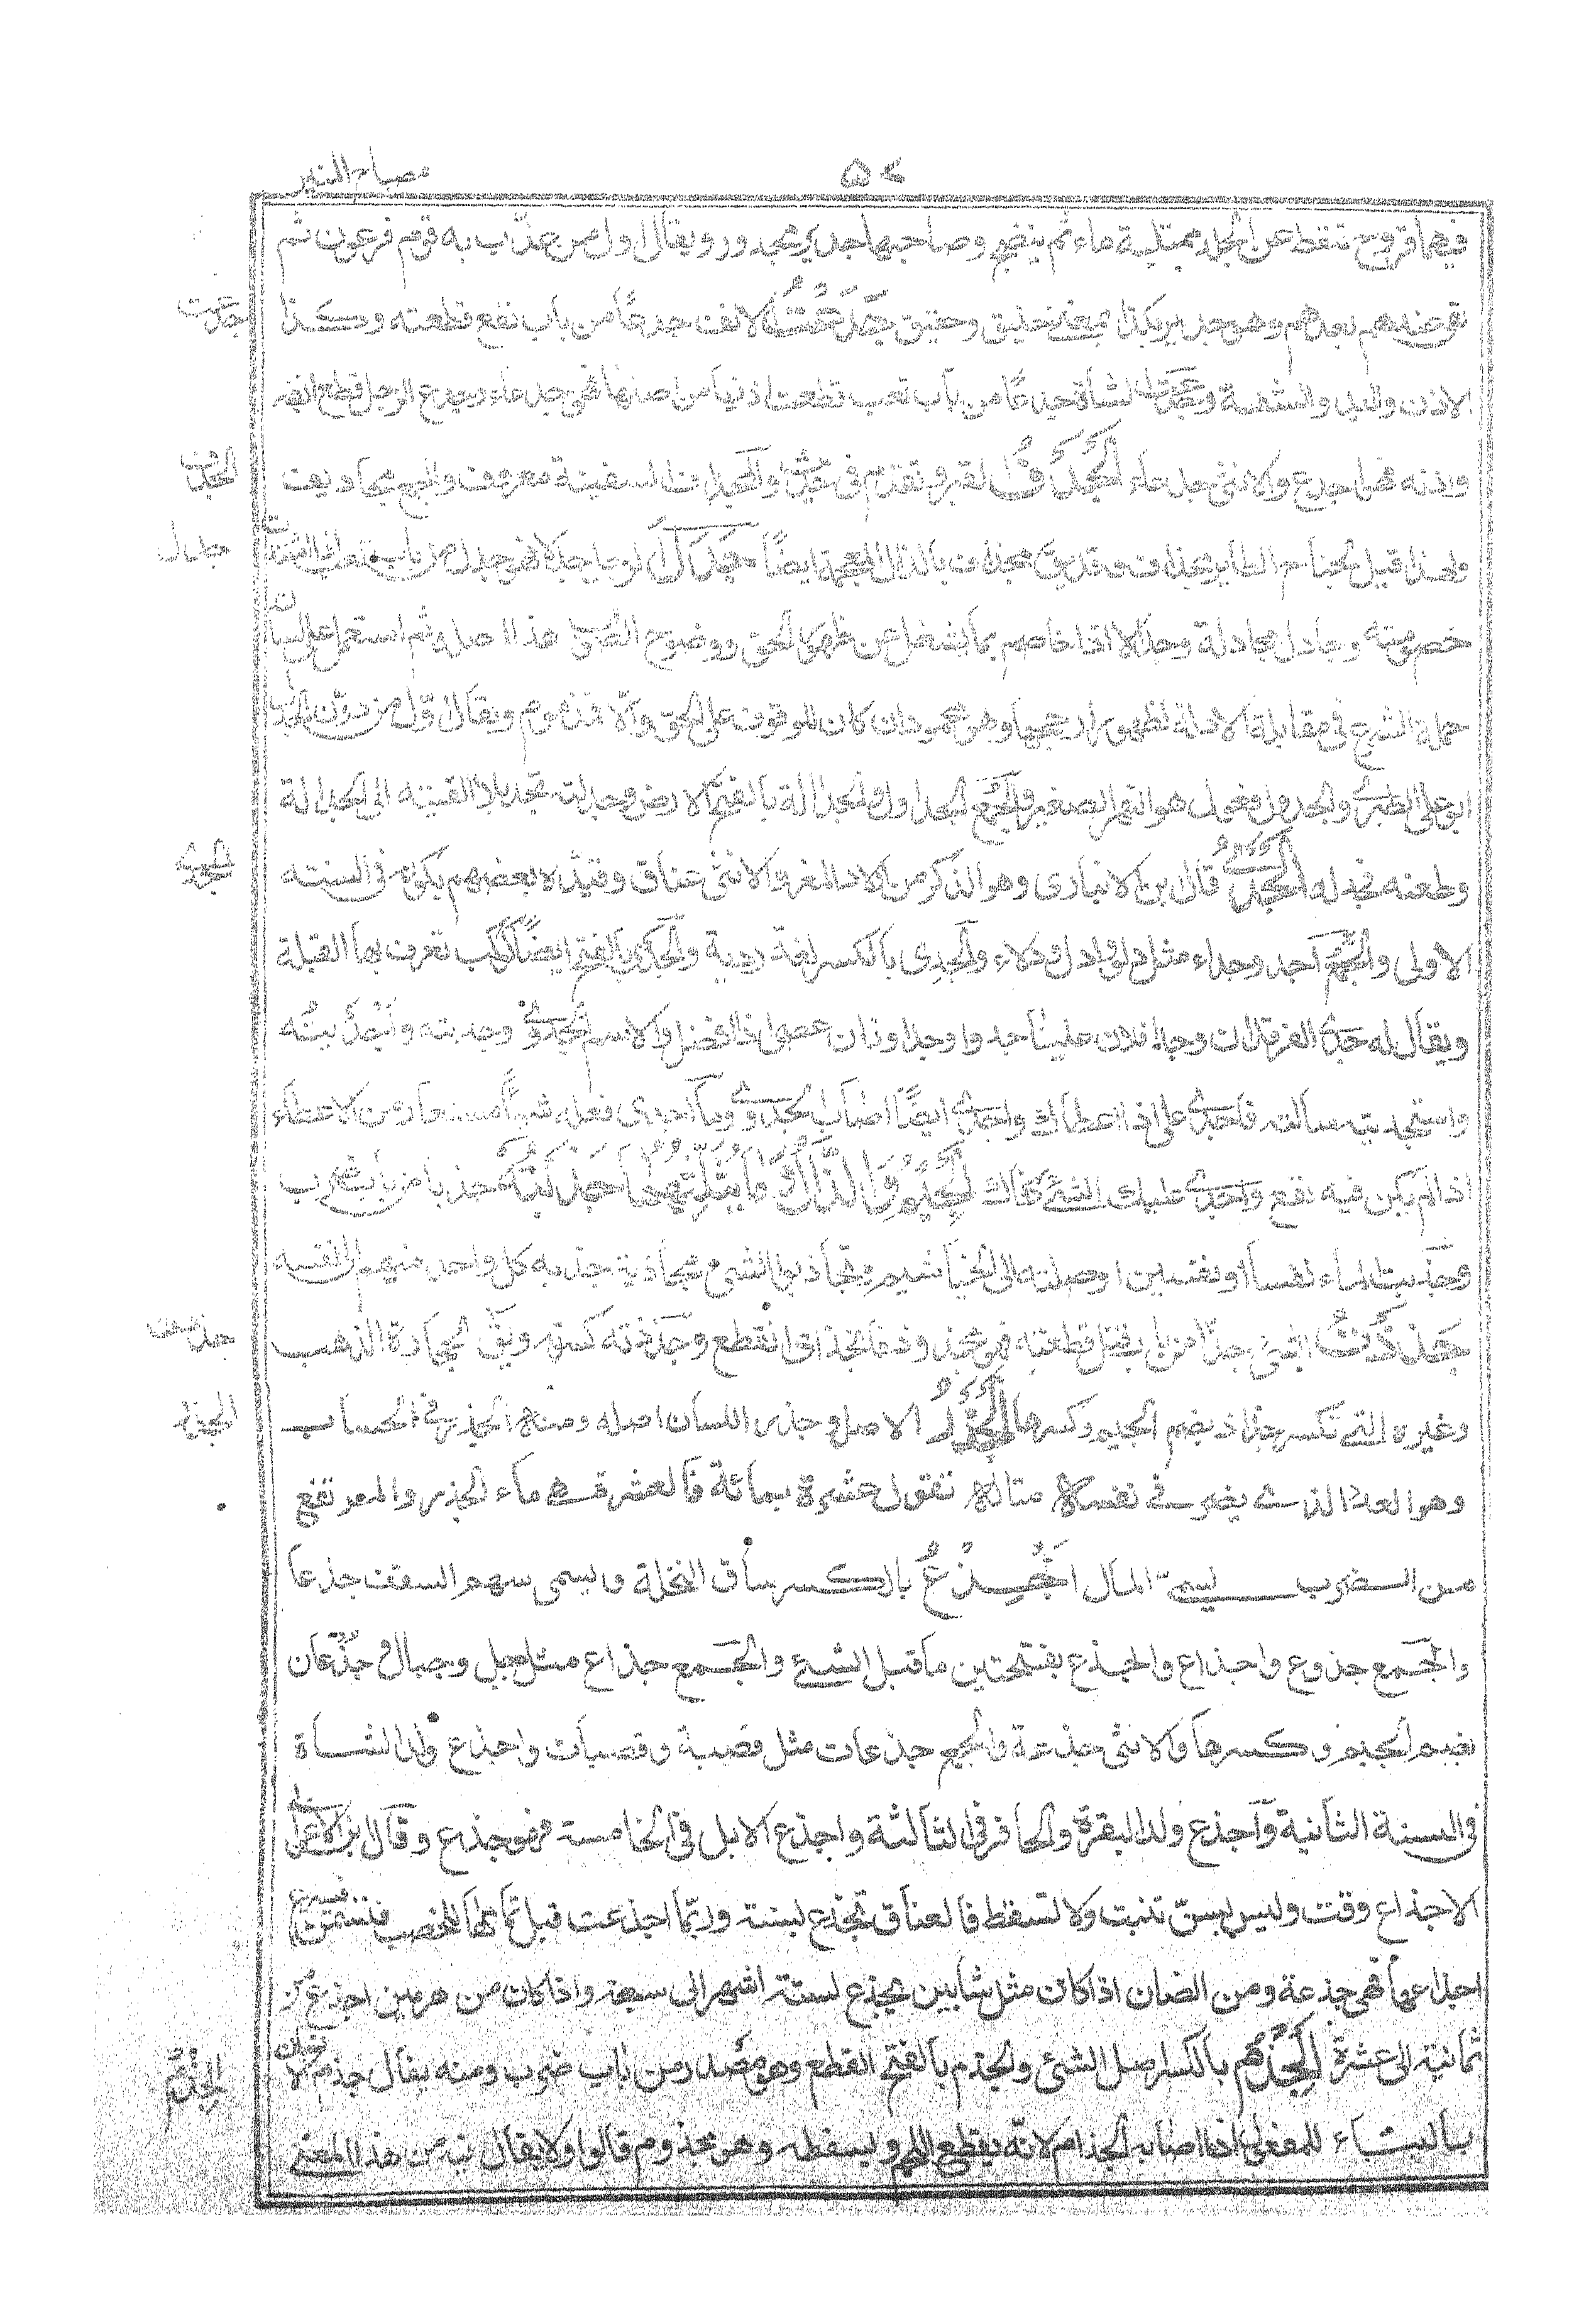 مصباح المنير
فيهما قروح تنفط عن الجلد ممتلية ماء ثم ينفتح وصاحبها جدير مجدور ويقال اول من عذب به قوم فرعون ثم
بقى عندهم بعدهم وهو جدير بكذا بمعنى خليق وحقيق جَدَعْتُ الانف جدعًا من باب نفع قطعته وكذا
جدعت
الاذن واليد والشفة وجدعت الشاة جدعًا من باب تعب قطعت اذنها من اصلها فهى جدعاء وجدع الرجل قطع انفه
واذنه فهو اجدع والانثى جدعاء الجَدَفُ القبر وتقدم فى والمجداف السفينة معروف والجمع مجاديف
الجدف
ولهذا قيل لجناح الطاير مجداف وقد يق مجذاف بالذال المعجمة ايضًا جَدِلَ الرجل جدلا فهو جدل من باب تعب اذا اشتدت
جدل
خصومته وجادل مجادلة وجدالا اذا خاصم بما يشغل عن ظهور الحق ووضوح الصواب هذا اصله ثم استعمل على لسان
حملة الشرع فى مقابلة الادلة لظهور ارجحها وهو محمود ان كان للوقوف على الحق والا فمذموم ويقال اول من دون الجدل
ابو على الطبرى والجدول فعول هو النهر الصغير والجمع الجداول والجدالة بالفتح الارض وجدلته تجديلا القيته الى الجدالة
وطعنه فجدله الجَدْىُ قال بن الانبارى وهو الذكر من اولاد المعز والانثى عناق وقيده بعضهم بكونه فى السنة
الجدى
الاولى والجمع اجد وجداء مثل دلو وادل ودلاء والجدى بالكسر لغة ردية والجدى بالفتح ايضًا كوكب تعرف به القبلة
ويقال له جدى الفرقد وجدا فلان علينا جدوا وجدا وزان عصا اذا افضل والاسم الجدوى وجدبته واجتديته
واستجديته سألته فاجدى على اذا اعطاك واجدى ايضًا اصاب الجدوى وما اجدى فعله شيًا مستعار من الاعطاء
اذا لم يكن فيه نفع واجدى عليك الشئ كفاك الجِيْمُ وَالذَّالُ وَمَا يُثَلِّثُهُمَا جَذَبْتُهُ جذبا من باب ضرب
وجذبت الماء نفسا او نفسين اوصلته الى الخياشيم وتجاذبوا الشئ مجاذبة جذبه كل واحد منهم الى نفسه
جَذَذْتُ الشئ جذًا من باب قتل قطعته فهو مجذوذ فانجذ اى انقطع وجذذته كسرته ويق لحجارة الذهب
جذذت
وغيره التى تكسر جذاذ بضم الجيم وكسرها الجَذْرُ الاصل وجذر اللسان اصله ومنه الجذر فى الحساب
الجذر
وهو العدد الذى يضرب فى نفسه مثاله تقول عشرة بمائة فالعشرة هى ماء الجذر والمرتفع
من الضرب ليسمى المال الجِذْعُ بالكسر ساق النخلة وليسمى سهم السقف جذعا
والجمع جذوع واجذاع والجذع بفتحتين ما قبل الثنى والجمع جذاع مثل جبل وجبال وجُذعان
بضم الجيم وكسرها والانثى جذعة والجمع جذعات مثل قصبة وقصبات واجذع ولد الشاة
فى السنة الثانية واجذع ولد البقرة والحافر فى الثالثة واجذع الابل فى الخامسة فهو جذع وقال بن الاعرابى
الاجذاع وقت وليس بسنّ تنبت ولا تسقط فالعناق تجذع لسنة وربّما اجذعت قبل تمامها للخصب فتسمن فيسرع
اجذاعها فهى جذعة ومن الضان اذا كان مثل شابين يجذع لستة اشهر الى سبعة واذا كان من هرمين اجذع من
ثمانية الى عشرة الجِذْمُ بالكسر اصل الشئ والجذم بالفتح القطع وهو مصدر من باب ضرب ومنه يقال جذم الانسان
الجذم
بالبناء للمفعول اذا اصابه الجذام لانّه يقطع اللحم ويسقطه وهو مجذوم قالوا ولا يقال فيه من هذا المعنى